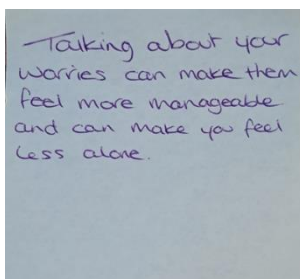 Talking about your
worries can make them
feel more manageable
and can make you feel
less alone.